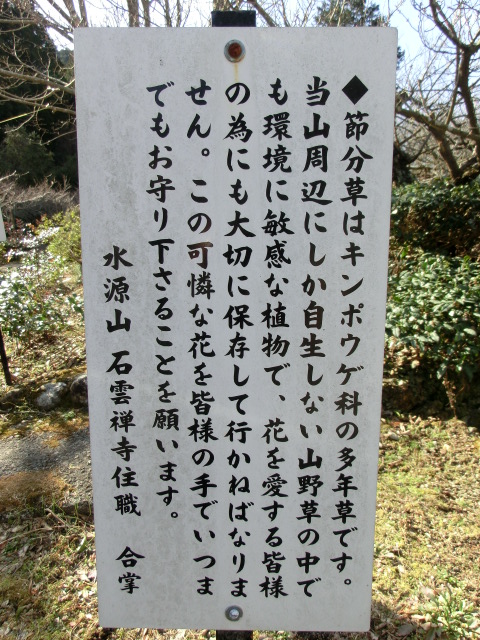 ◆節分草はキンポウゲ科の多年草です。
当山周辺にしか自生しない山野草の中で
も環境に敏感な植物で、花を愛する皆様
の為にも大切に保存して行かねばなりま
せん。この可憐な花を皆様の手でいつま
でもお守り下さることを願います。
水源山 石雲禅寺住職 合掌